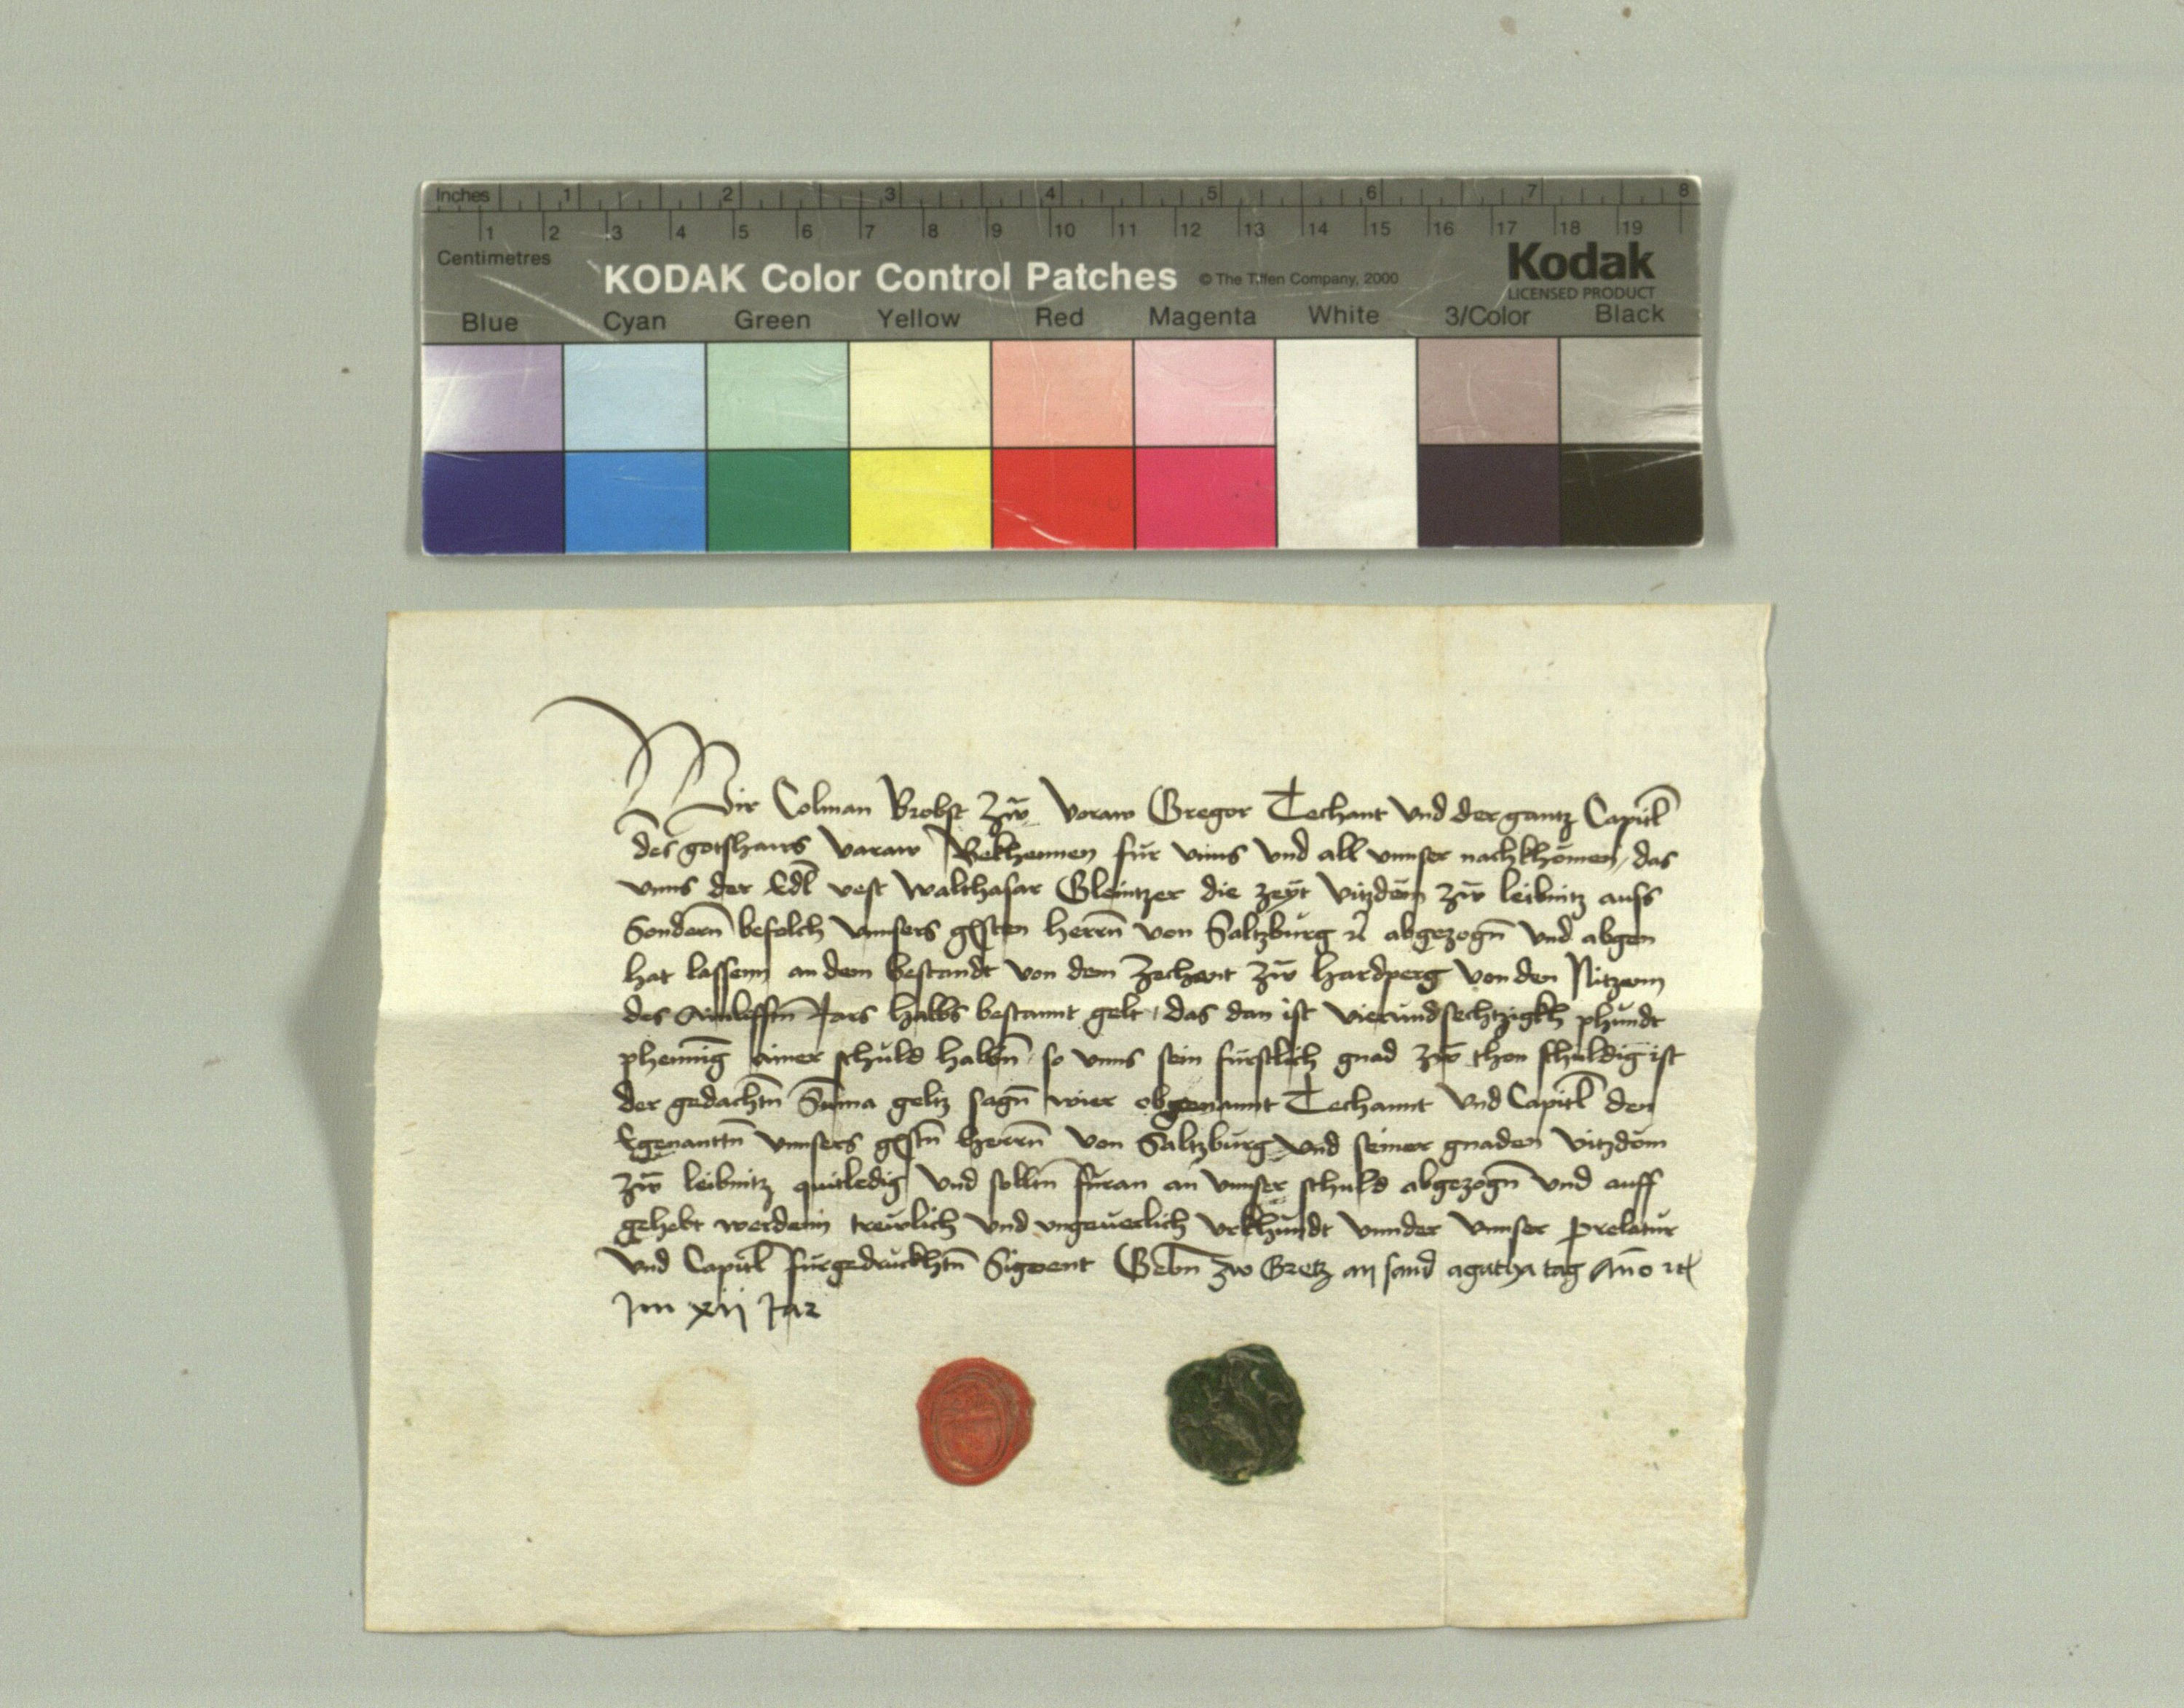 Inches 1 2 3 4 5 6 7 8
1 2 3 4 5 6 7 8 9 10 11 12 13 14 15 16 17 18 19
Centimetres
KODAK Color Control Patches © The Tiffen Company, 2000 Kodak
LICENSED PRODUCT
Blue Cyan Green Yellow Red Magenta White 3/Color Black
Wir Colman Brobst zw Voraw Gregor Techant vnd der gantz Capitl
des gotshaws Varaw Bekhennen fur vnns vnd all vnnser nachkhomen, das
vnns der Edl vest Walthasar Gleintzer die zeyt vitzdom zw leibnitz auss
Sondern befolch vnnsers gsten herrn von Saltzburg rc abgezogn vnd abgen
hat lassenn an dem bestandt von dem Zechent zw hardperg von den Nitzenn
des Aindlefftn Jars halbs bestannt gelt, das dan ist vierundsechtzigkh phundt
phennig ainer schuld halbn so vnns sein furstlich gnad zw thon schuldig ist
der gedachtn Suma geltz sagn wier obgenannt Techannt vnd Capitl den
Egenanttn vnnsers gstn herrn von Saltzburg vnd seiner gnaden vitzdom
zw leibnitz quitledig vnd solltn furan an vnnser schuld abgezogn vnd auff
gehebt werdenn trewlich vnd vngeuerlich vrkhundt vnnder vnnser prelatur
vnd Capitl furgedruckhtn Sigent Gebn zw Gretz an sand agatha tag Ano rc
Im xii Jar